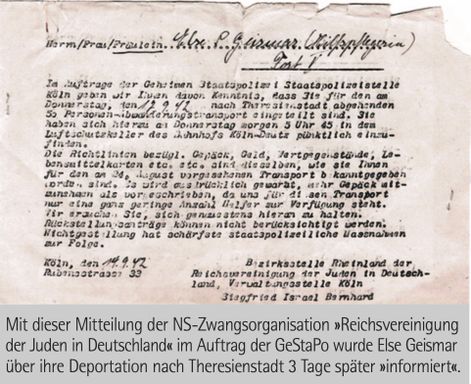 Herrn/Frau/Fräulein Else S. Geismar (Hilfspflegerin)
Fort V
Im Auftrage der Geheimen Staatspolizei Staatspolizeistelle
Köln geben wir Ihnen davon Kenntnis, dass Sie für den am
Donnerstag, den 17.9.42 nach Theresienstadt abgehenden
50 Personen-Abwanderungstransport eingeteilt sind. Sie
haben sich hierzu am Donnerstag morgen 5 Uhr 45 in dem
Luftschutzkeller des Bahnhofs Köln-Deutz pünktlich einzu-
finden.
Die Richtlinien bezügl. Gepäck, Geld, Wertgegenstände, Le-
bensmittelkarten etc. etc. sind dieselben, wie sie Ihnen
für den am 24. August vorgesehenen Transport b kanntgegeben
worden sind. Es wird ausdrücklich gewarnt, mehr Gepäck mit-
zunehmen als vorgeschrieben, da uns für di sen Transport
nur eine ganz geringe Anzahl Helfer zur Verfügung steht.
Wir ersuchen Sie, sich genauestens hieran zu halten.
Rückstellungsanträge können nicht berücksichtigt werden.
Nichtgestellung hat schärfste staatspolizeiliche Massnahmen
zur Folge.
Köln, den 14.9.42
Rubensstrasse 33
Bezirksstelle Rheinland der
Reichsvereinigung der Juden in Deutsch-
land, Verwaltungsstelle Köln
Siegfried Israel Bernhard
Mit dieser Mitteilung der NS-Zwangsorganisation »Reichsvereinigung
der Juden in Deutschland« im Auftrag der GeStaPo wurde Else Geismar
über ihre Deportation nach Theresienstadt 3 Tage später »informiert«.